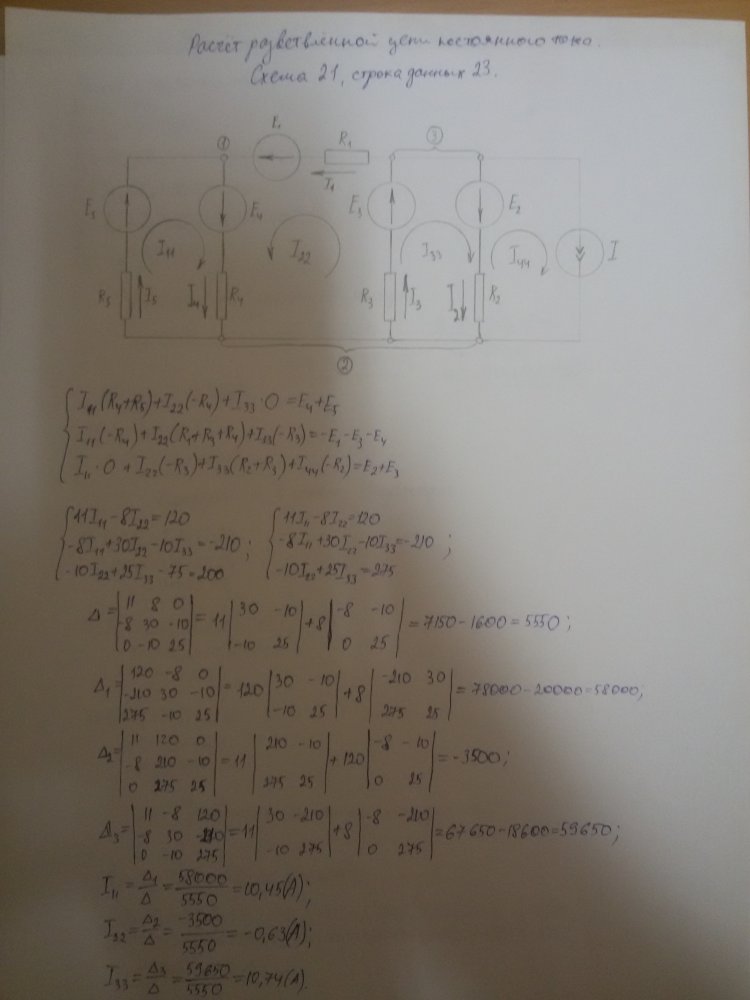 Расчёт разветвлённой цепи постоянного тока.
Схема 21, строка данных 23.
1 E₁ R₁ 3
I₁
E₅ E₄ E₃ E₂
I₁₁ I₂₂ I₃₃ I₄₄ I
R₅ I₅ I₄ R₄ R₃ I₃ I₂ R₂
2
I₁₁(R₄+R₅)+I₂₂(-R₄)+I₃₃·0=E₄+E₅
I₁₁(-R₄)+I₂₂(R₁+R₃+R₄)+I₃₃(-R₃)=-E₁-E₃-E₄
I₁₁·0+I₂₂(-R₃)+I₃₃(R₂+R₃)+I₄₄(-R₂)=E₂+E₃
11I₁₁-8I₂₂=120 11I₁₁-8I₂₂=120
-8I₁₁+30I₂₂-10I₃₃=-210; -8I₁₁+30I₂₂-10I₃₃=-210;
-10I₂₂+25I₃₃-75=200 -10I₂₂+25I₃₃=275
Δ=|11 8 0; -8 30 -10; 0 -10 25|=11|30 -10; -10 25|+8|-8 -10; 0 25|=7150-1600=5550;
Δ₁=|120 -8 0; -210 30 -10; 275 -10 25|=120|30 -10; -10 25|+8|-210 30; 275 25|=78000-20000=58000;
Δ₂=|11 120 0; -8 210 -10; 0 275 25|=11|210 -10; 275 25|+120|-8 -10; 0 25|=-3500;
Δ₃=|11 -8 120; -8 30 -210; 0 -10 275|=11|30 -210; -10 275|+8|-8 -210; 0 275|=67650-18600=59650;
I₁₁=Δ₁/Δ=58000/5550=10,45(A);
I₂₂=Δ₂/Δ=-3500/5550=-0,63(A);
I₃₃=Δ₃/Δ=59650/5550=10,74(A).